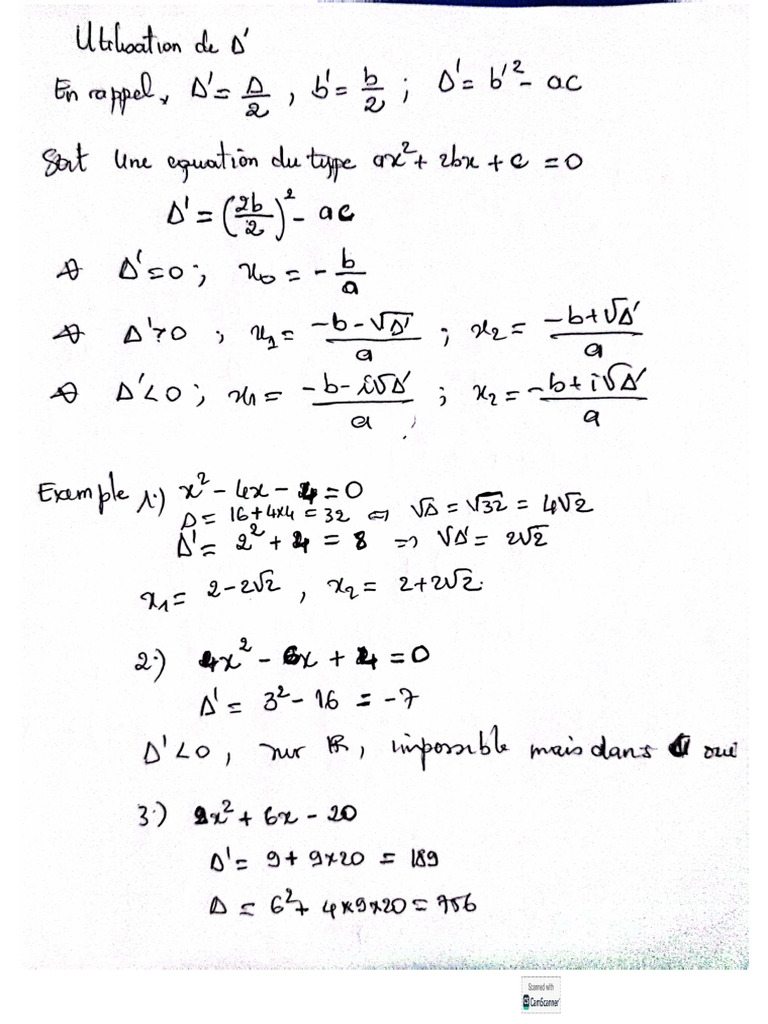 Utilisation de Δ'
En rappel, Δ' = Δ/2 , b' = b/2 ; Δ' = b'² - ac
Soit Une equation du type ax² + 2bx + c = 0
Δ' = (2b/2)² - ac
Δ' = 0 ; x₀ = - b/a
Δ' > 0 ; x₁ = (-b - √Δ')/a ; x₂ = (-b + √Δ')/a
Δ' < 0 ; x₁ = (-b - i√Δ')/a ; x₂ = (-b + i√Δ')/a
Exemple 1.) x² - 4x - 4 = 0
Δ = 16 + 4x4 = 32 ⇔ √Δ = √32 = 4√2
Δ' = 2² + 4 = 8 => √Δ' = 2√2
x₁ = 2 - 2√2 , x₂ = 2 + 2√2.
2.) 4x² - 6x + 4 = 0
Δ' = 3² - 16 = -7
Δ' < 0 , sur ℝ, impossible mais dans ℂ oui
3.) 9x² + 6x - 20
Δ' = 9 + 9x20 = 189
Δ = 6² + 4x9x20 = 756
Scanned with
CamScanner